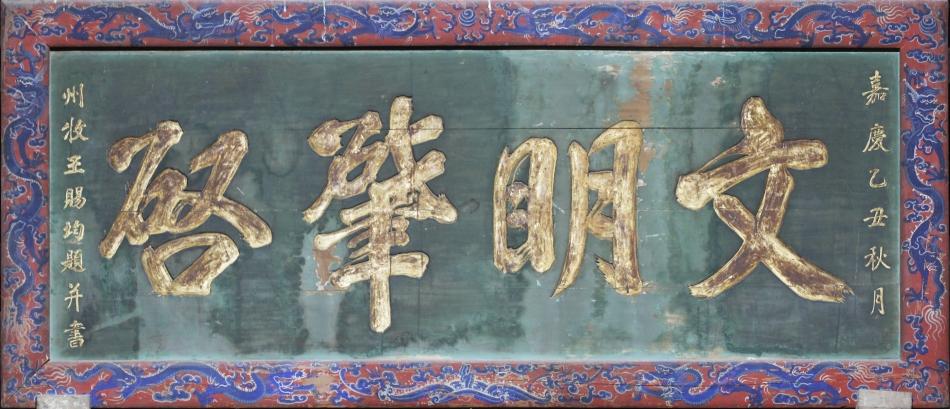 嘉慶乙丑秋月
文明肇啟
州牧王賜均題并書